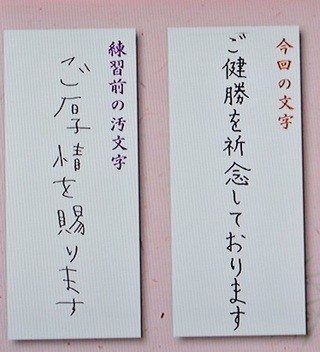 今回の文字
ご健勝を祈念しております
練習前の汚文字
ご厚情を賜ります